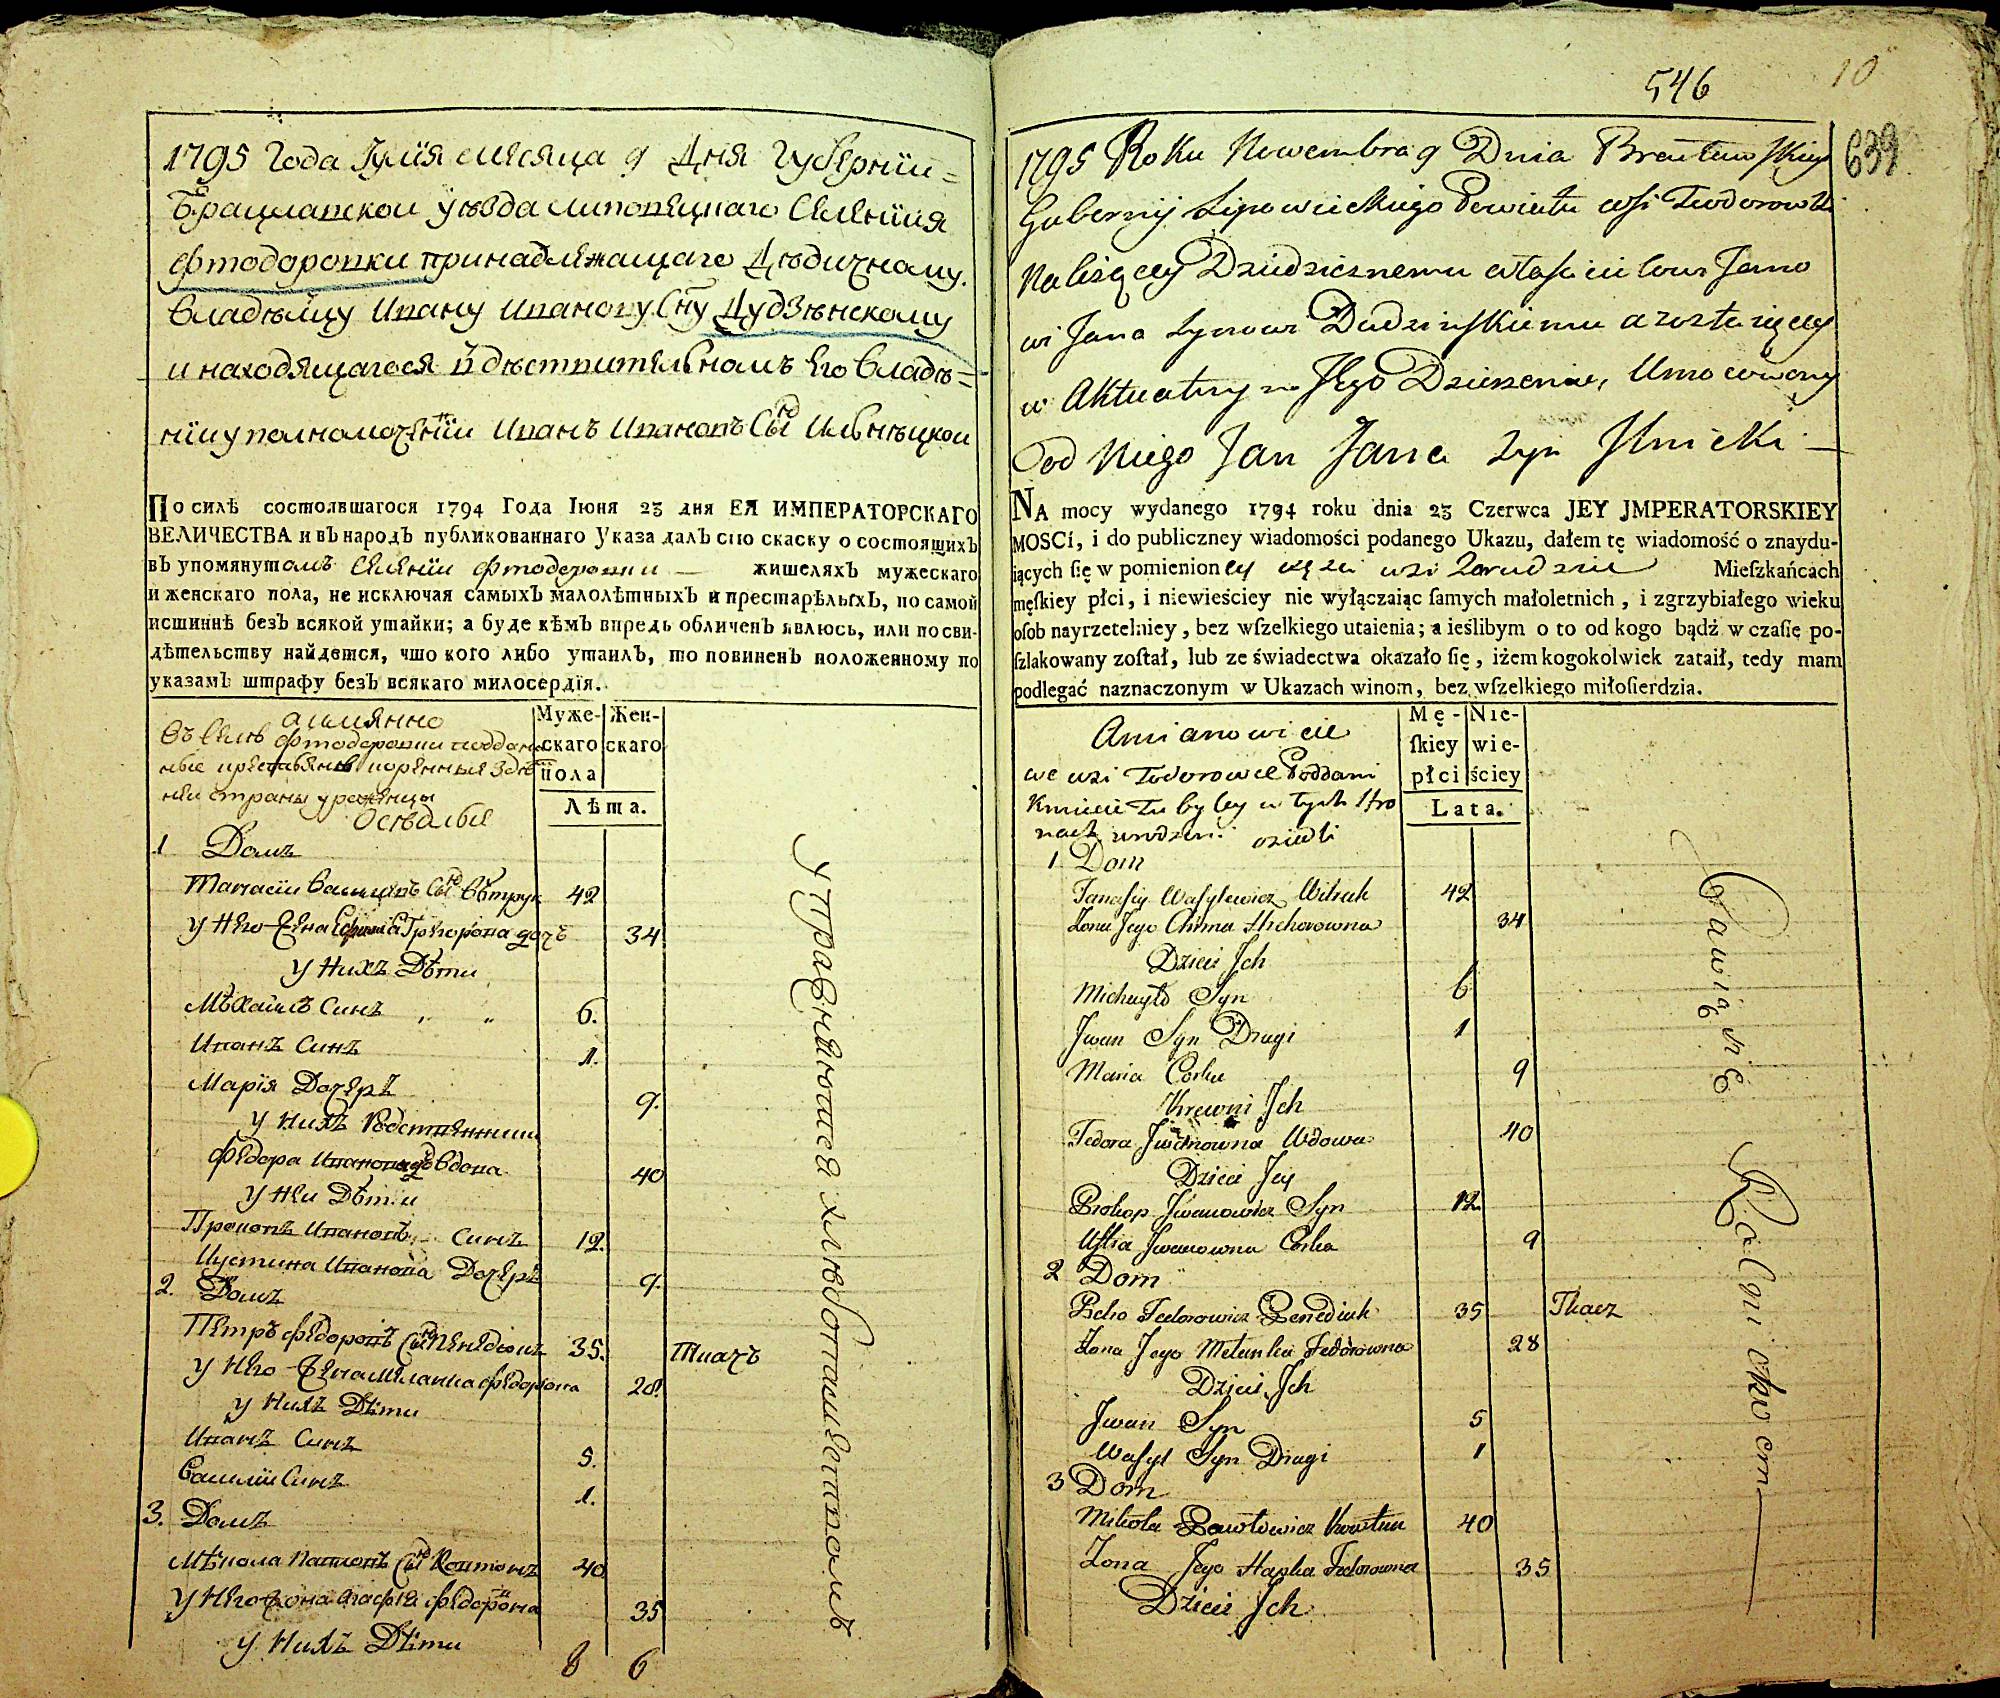 1795 Года Іулія месяца 9 Дня Губерніи=
Брацлавскои уѣзда липовецкаго Селенїия
Фтодоровки принадлежащаго Дѣдичному
Владѣлцу Ивану Иванову Сну Дудзѣнскому
и находящагося в дѣствителномъ Его владѣ=
ніи уполномоченіи Иванъ Ивановъ Снъ Илѣницкои
По силѣ состоявшагося 1794 Года Іюня 23 дня ЕЯ ИМПЕРАТОРСКАГО
ВЕЛИЧЕСТВА и въ народъ публикованнаго Указа далъ сію скаску о состоящихъ
въ упомянутомъ Селеніи Фтодоровки — жителяхъ мужескаго
и женскаго пола, не исключая самыхъ малолѣтныхъ и престарѣлыхъ, по самой
истиннѣ безъ всякой утайки; а буде кѣмъ впредь обличенъ явлюсь, или по сви-
дѣтельству найдется, что кого либо утаилъ, то повиненъ положенному по
указамъ штрафу безъ всякаго милосердїя.
аимянно
Въ Селѣ Фтодоровки поддан
ные крестьянѣ коренныя здѣ
неи страны уроженцы
Оседлые
Муже-скаго пола
Жен-скаго
Лѣта.
1 Домъ
Танасіи Василивъ Снъ Вѣтрук 42
у Него Жена Григорова дочъ 34
у Нихъ Дѣти
Мѣхаилъ Синъ 6.
Иванъ Синъ 1.
Марїя Дочеръ 9.
у Нихъ Родственники
Федора Иванова вдова 40
у Неи Дѣти
Прокопъ Ивановъ Синъ 12.
Иустина Иванова Дочеръ 9.
2. Домъ
Петръ Федоровъ Снъ Бенедюкъ 35. Ткачъ
у Него Жена Меланка Федорова 28.
у Нихъ Дѣти
Иванъ Синъ 5.
Василіи Синъ 1.
3. Домъ
Мѣкола Павловъ Снъ Ковтонъ 40
у Него Жона Агафія Федорова 35
у Нихъ Дѣти
8 6
упражняются хлѣбопашествомъ
546
10
639
1795 Roku Nowembra 9 Dnia Bracławskiey
Gubernij Lipowieckiego Powiatu wsi Todorowki
Należącey Dziedzicznemu właścicielowi Jano
wi Jana Synowi Dudzinskiemu a zostaiącey
w Aktualnym Jego Dzierzeniu, Umocowany
Od Niego Jan Jana Syn Jlnicki —
NA mocy wydanego 1794 roku dnia 23 Czerwca JEY JMPERATORSKIEY
MOSCi, i do publiczney wiadomości podanego Ukazu, dałem tę wiadomość o znaydu-
iących ſię w pomienioney wsi Mieſzkańcach
męſkiey płci, i niewieściey nie wyłączaiąc ſamych małoletnich, i zgrzybiałego wieku
oſob nayrzetelniey, bez wſzelkiego utaienia; a ieślibym o to od kogo bądź w czaſie po-
ſzlakowany zoſtał, lub ze świadectwa okazało ſię, iżem kogokolwiek zataił, tedy mam
podlegać naznaczonym w Ukazach winom, bez wſzelkiego miłoſierdzia.
Amianowicie
we wsi Todorowce Poddani
Kmiecie Tu byley w tych Stro
nach urodzeni osiedli
Mę-ſkiey płci
Nie-wie-ściey
Lata.
1 Dom
Tanasiy Wasylewicz Witruk 42
Zona Jego Chima Hrehorowna 34
Dzieci Jch
Michayło Syn 6
Jwan Syn Drugi 1
Maria Corka 9
Krewni Jch
Fedora Jwanowna Wdowa 40
Dzieci Jey
Prokop Jwanowicz Syn 12
Ustia Jwanowna Corka 9
2 Dom
Petro Fedorowicz Benediuk 35 Tkacz
Zona Jego Melanka Fedorowna 28
Dzieci Jch
Jwan Syn 5
Wasyl Syn Drugi 1
3 Dom
Mikola Pawlowicz Kowtun 40
Zona Jego Hapka Fedorowna 35
Dzieci Jch
Bawią się Rolnictwem